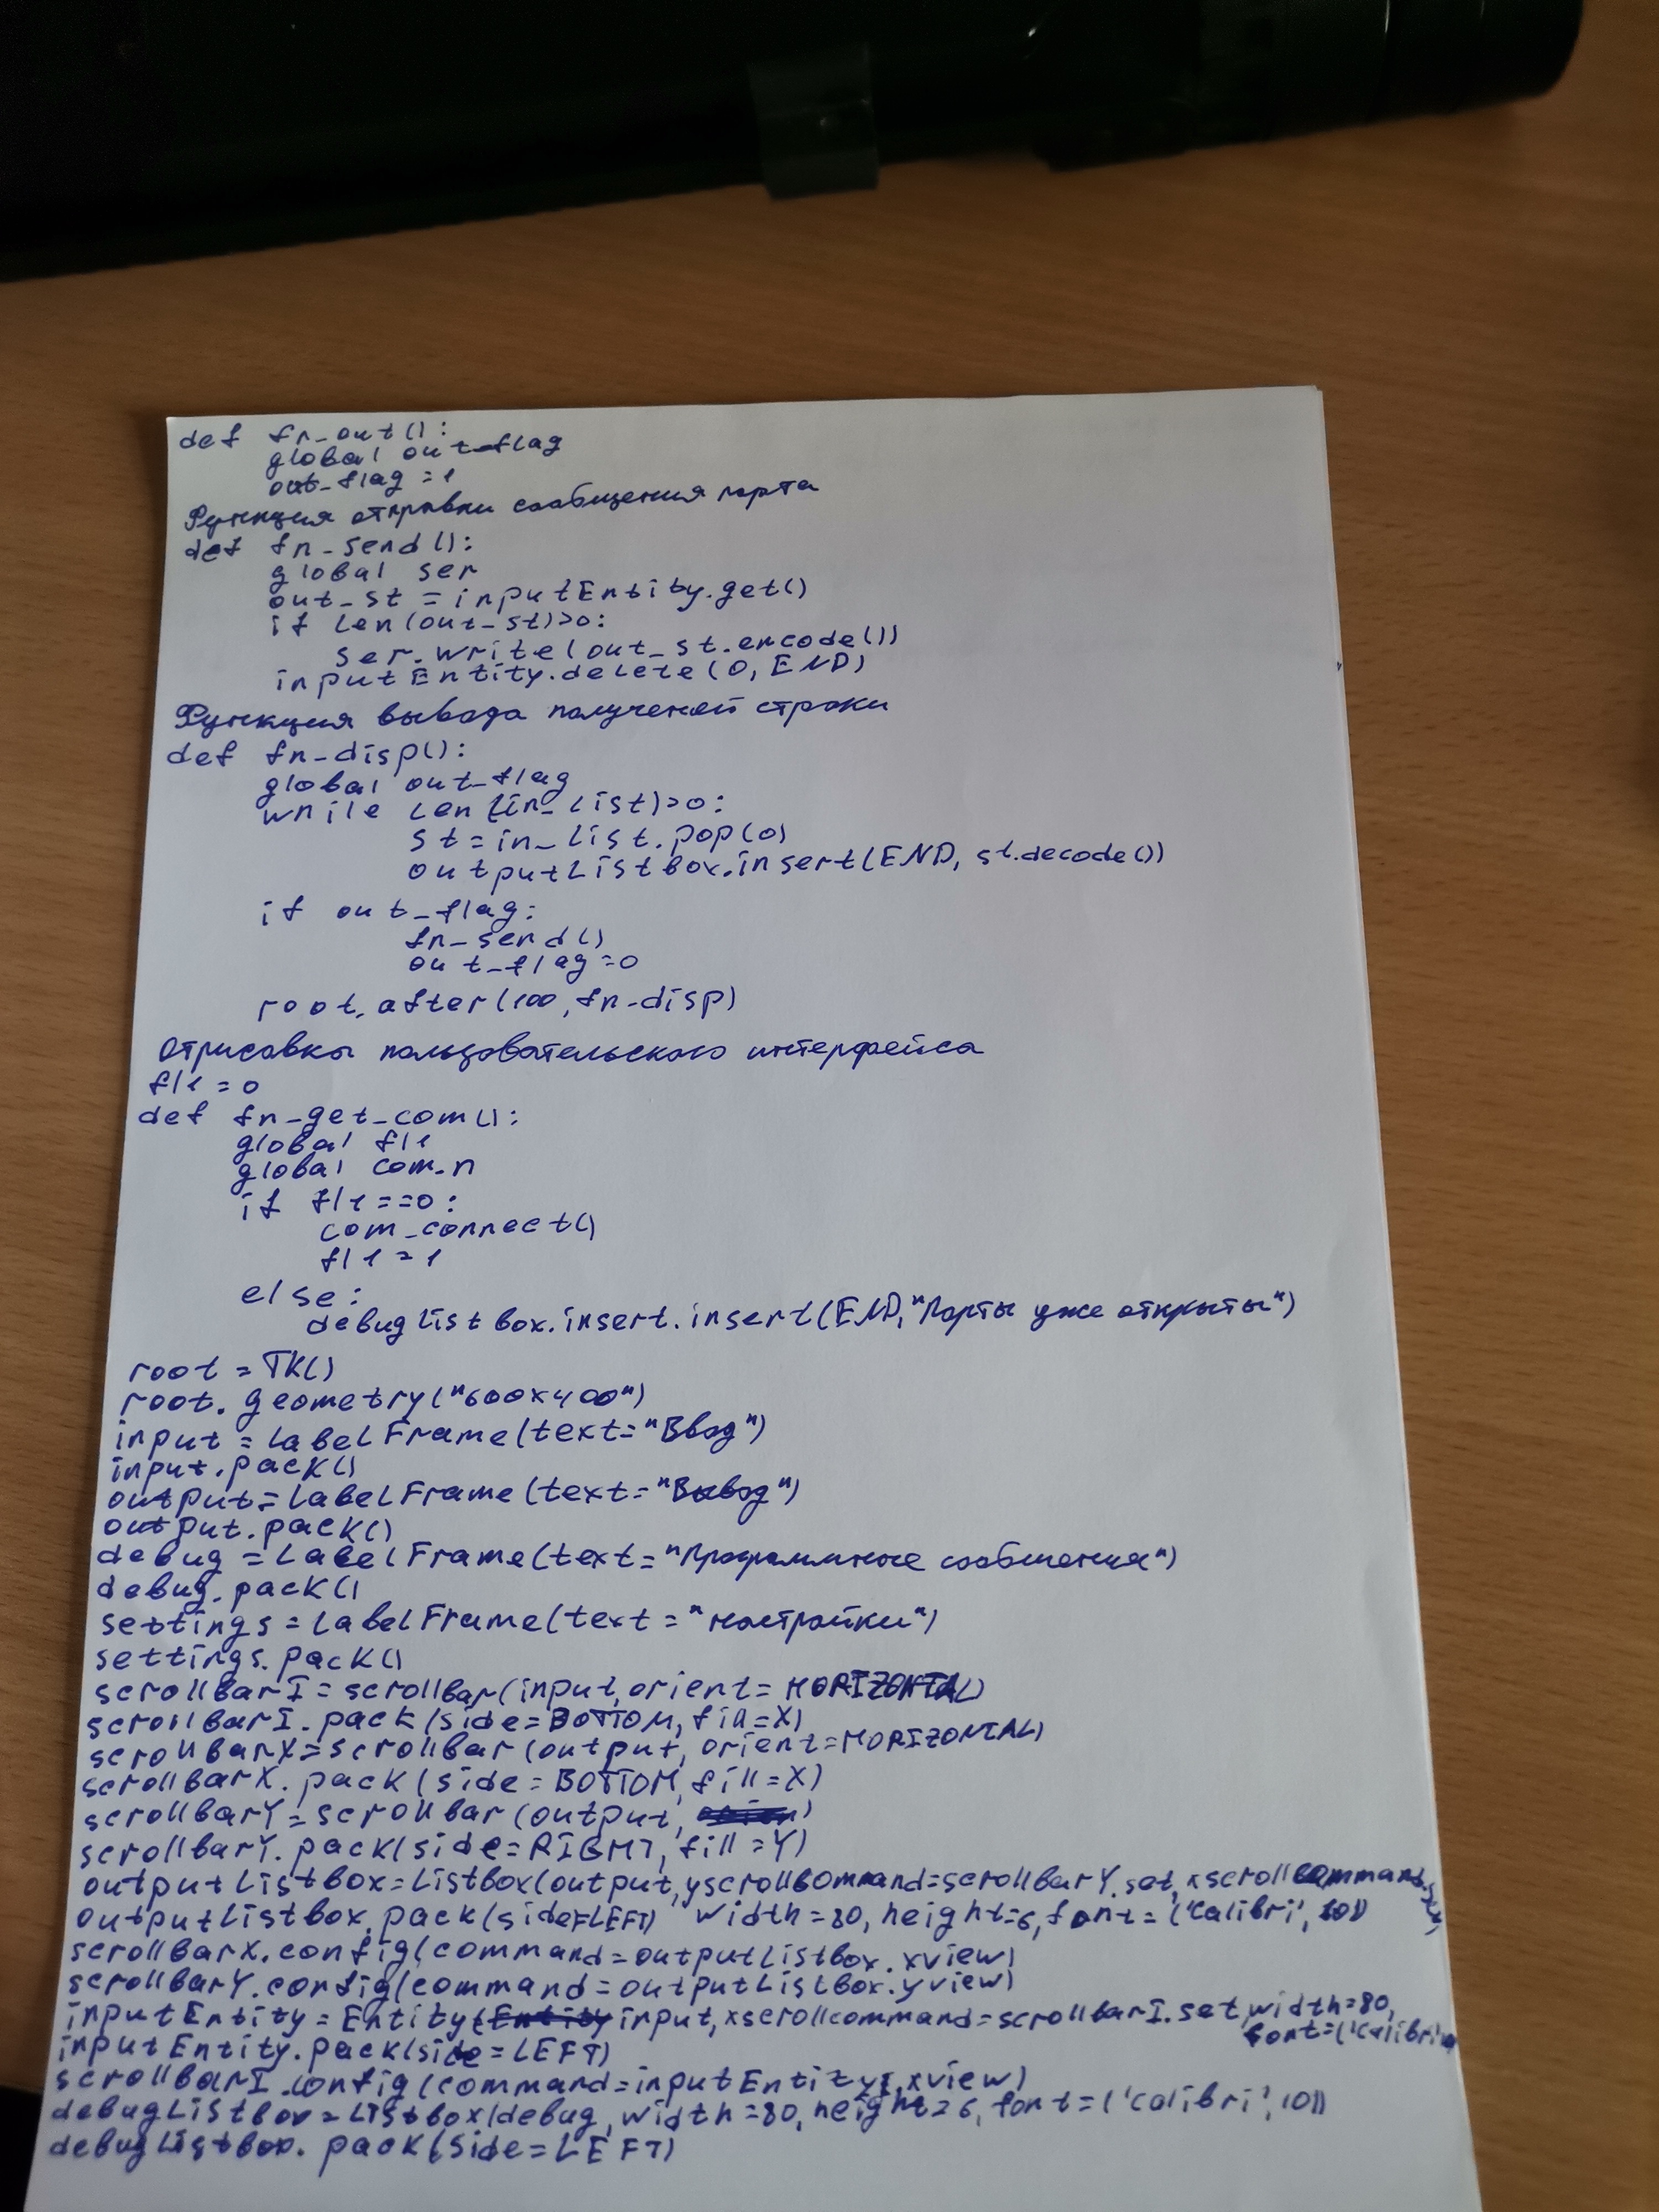 def fn_out():
global out_flag
out_flag = 1
Функция отправки сообщения порта
def fn_send():
global ser
out_st = inputEntity.get()
if len(out_st)>0:
ser.write(out_st.encode())
inputEntity.delete(0, END)
Функция вывода полученой строки
def fn_disp():
global out_flag
while len(in_list)>0:
st = in_list.pop(0)
outputListbox.insert(END, st.decode())
if out_flag:
fn_send()
out_flag = 0
root.after(100, fn_disp)
Отрисовка пользовательского интерфейса
fl1 = 0
def fn_get_com():
global fl1
global com_n
if fl1 == 0:
com_connect()
fl1 = 1
else:
debuglistbox.insert.insert(END, "Порты уже открыты")
root = TK()
root.geometry("600x400")
input = LabelFrame(text="Ввод")
input.pack()
output = LabelFrame(text="Вывод")
output.pack()
debug = LabelFrame(text="Программные сообщения")
debug.pack()
settings = LabelFrame(text="настройки")
settings.pack()
scrollbarI = scrollbar(input, orient=HORIZONTAL)
scrollbarI.pack(side=BOTTOM, fill=X)
scrollbarX = scrollbar(output, orient=HORIZONTAL)
scrollbarX.pack(side=BOTTOM, fill=X)
scrollbarY = scrollbar(output, )
scrollbarY.pack(side=RIGHT, fill=Y)
outputListbox = Listbox(output, yscrollcommand=scrollbarY.set, xscrollcommand
outputListbox.pack(side=LEFT) width=80, height=6, font=('Calibri', 10))
scrollbarX.config(command=outputListbox.xview)
scrollbarY.config(command=outputListbox.yview)
inputEntity = Entity(input, xscrollcommand=scrollbarI.set, width=80,
font=('Calibri'
inputEntity.pack(side=LEFT)
scrollbarI.config(command=inputEntity.xview)
debugListbox = Listbox(debug, width=80, height=6, font=('Calibri', 10))
debugListbox.pack(side=LEFT)